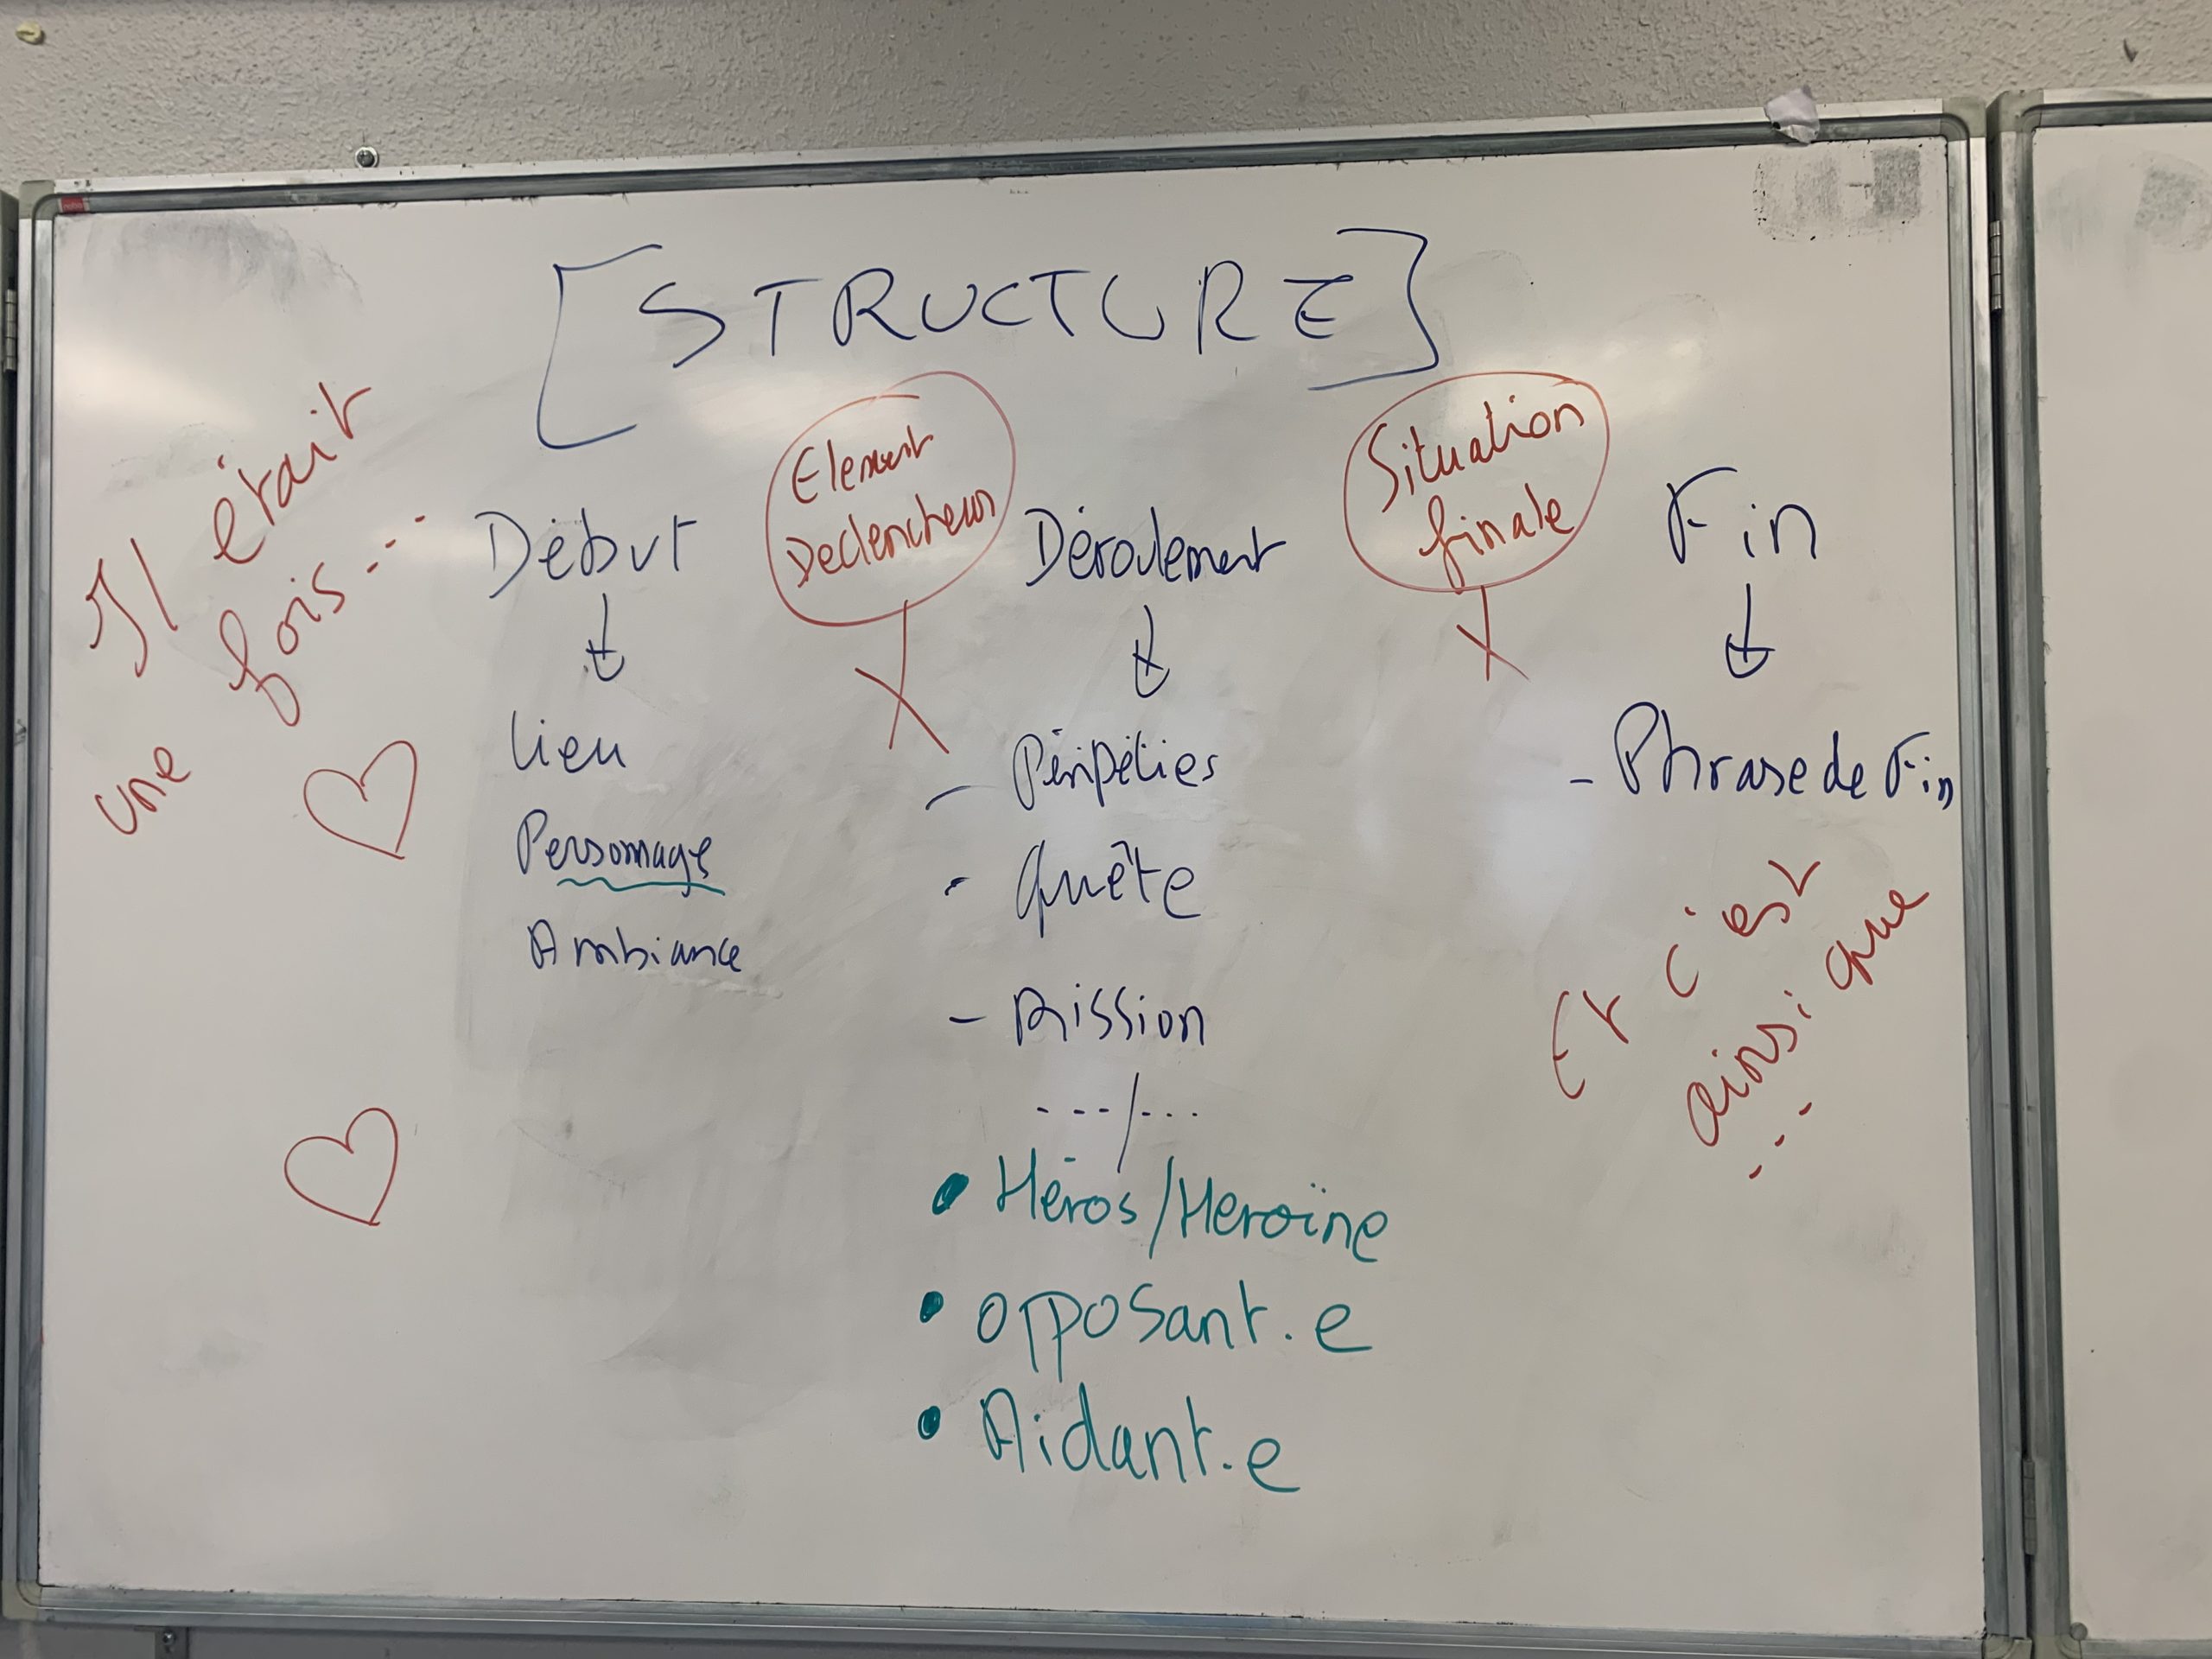 [STRUCTURE]
Il était
une fois...
Début
Lieu
Personnage
Ambiance
Element
Declencheur
Déroulement
- Péripéties
- Quête
- Mission
---/---
• Héros/Heroïne
• opposant.e
• Aidant.e
Situation
finale
Fin
- Phrase de Fin
Et c'est
ainsi que
...